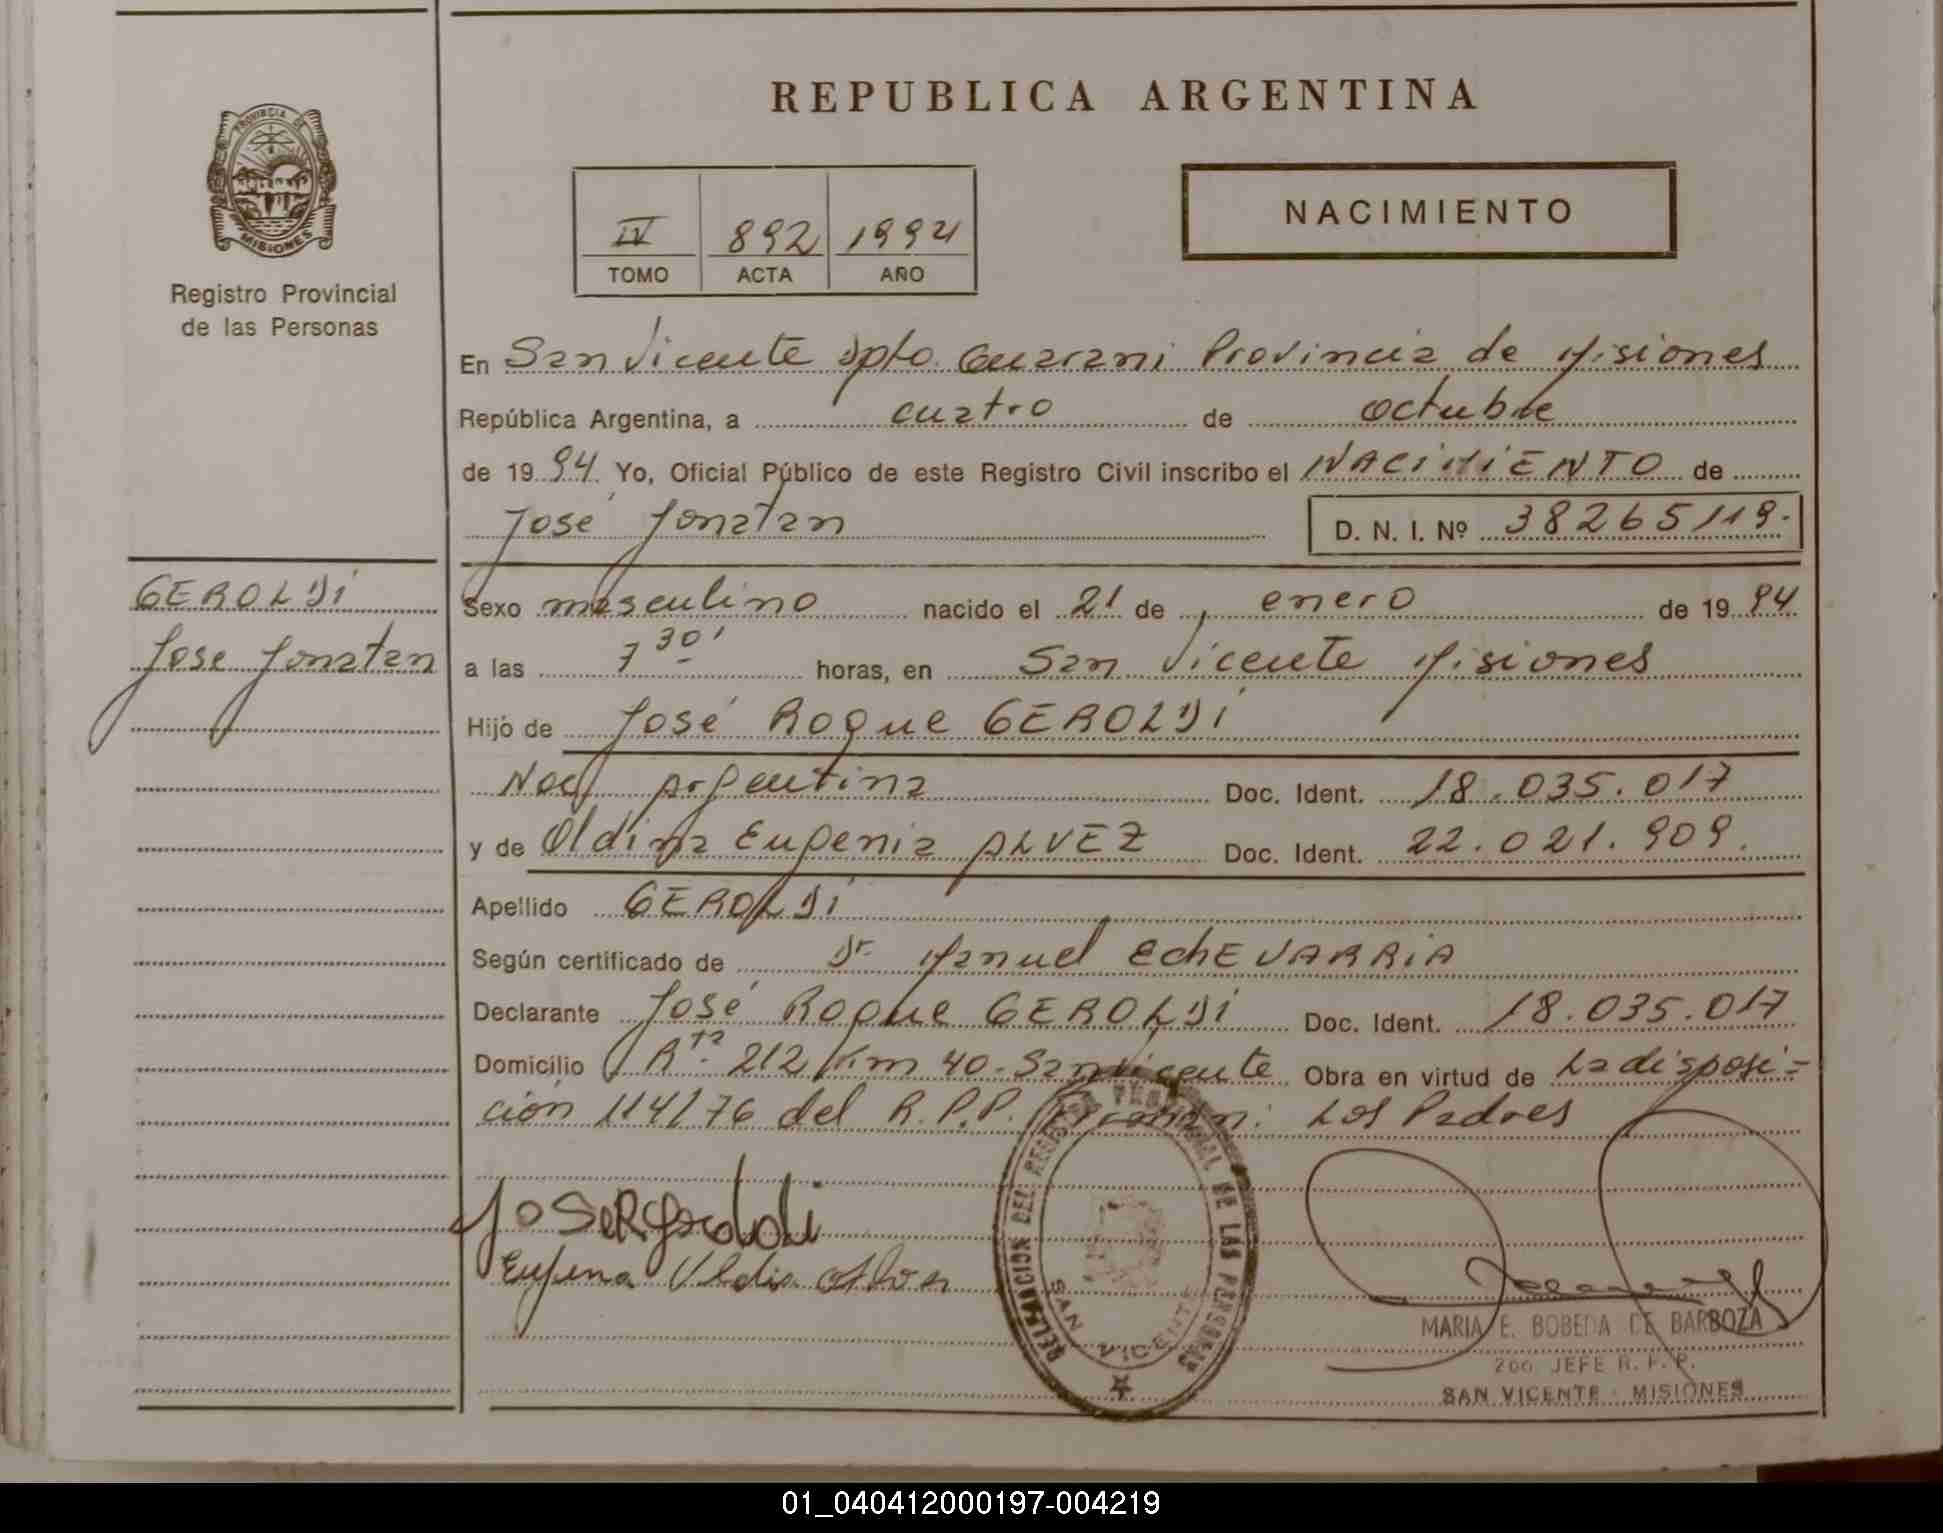 REPUBLICA ARGENTINA
PROVINCIA DE
MISIONES
Registro Provincial
de las Personas
IV 892 1994
TOMO ACTA AÑO
NACIMIENTO
En San Vicente Dpto. Guarani Provincia de Misiones
República Argentina, a cuatro de octubre
de 1994. Yo, Oficial Público de este Registro Civil inscribo el NACIMIENTO de
José Jonatan D. N. I. Nº 38265119.
GEROLDI
Jose Jonatan
Sexo masculino nacido el 21 de enero de 1994
a las 7 30' horas, en San Vicente Misiones
Hijo de José Roque GEROLDI
Nac. Argentina Doc. Ident. 18.035.017
y de Oldina Eugenia ALVEZ Doc. Ident. 22.021.909.
Apellido GEROLDI
Según certificado de Dr. Manuel EchEVARRIA
Declarante José Roque GEROLDI Doc. Ident. 18.035.017
Domicilio Rta 212 Km 40 - San Vicente Obra en virtud de La disposi-
ción 114/76 del R.P.P. Firman: Los Padres
JoSeRgeroldi
DELEGACION DEL REGISTRO PROVINCIAL DE LAS PERSONAS
SAN VICENTE
MARIA E. BOBEDA DE BARBOZA
2do JEFE R. P. P.
SAN VICENTE - MISIONES
01_040412000197-004219